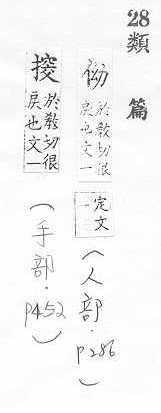 28
類篇
於教切很
戾也文一
定文
一
(人部.p286)
於教切很
戾也文一
(手部.p452)